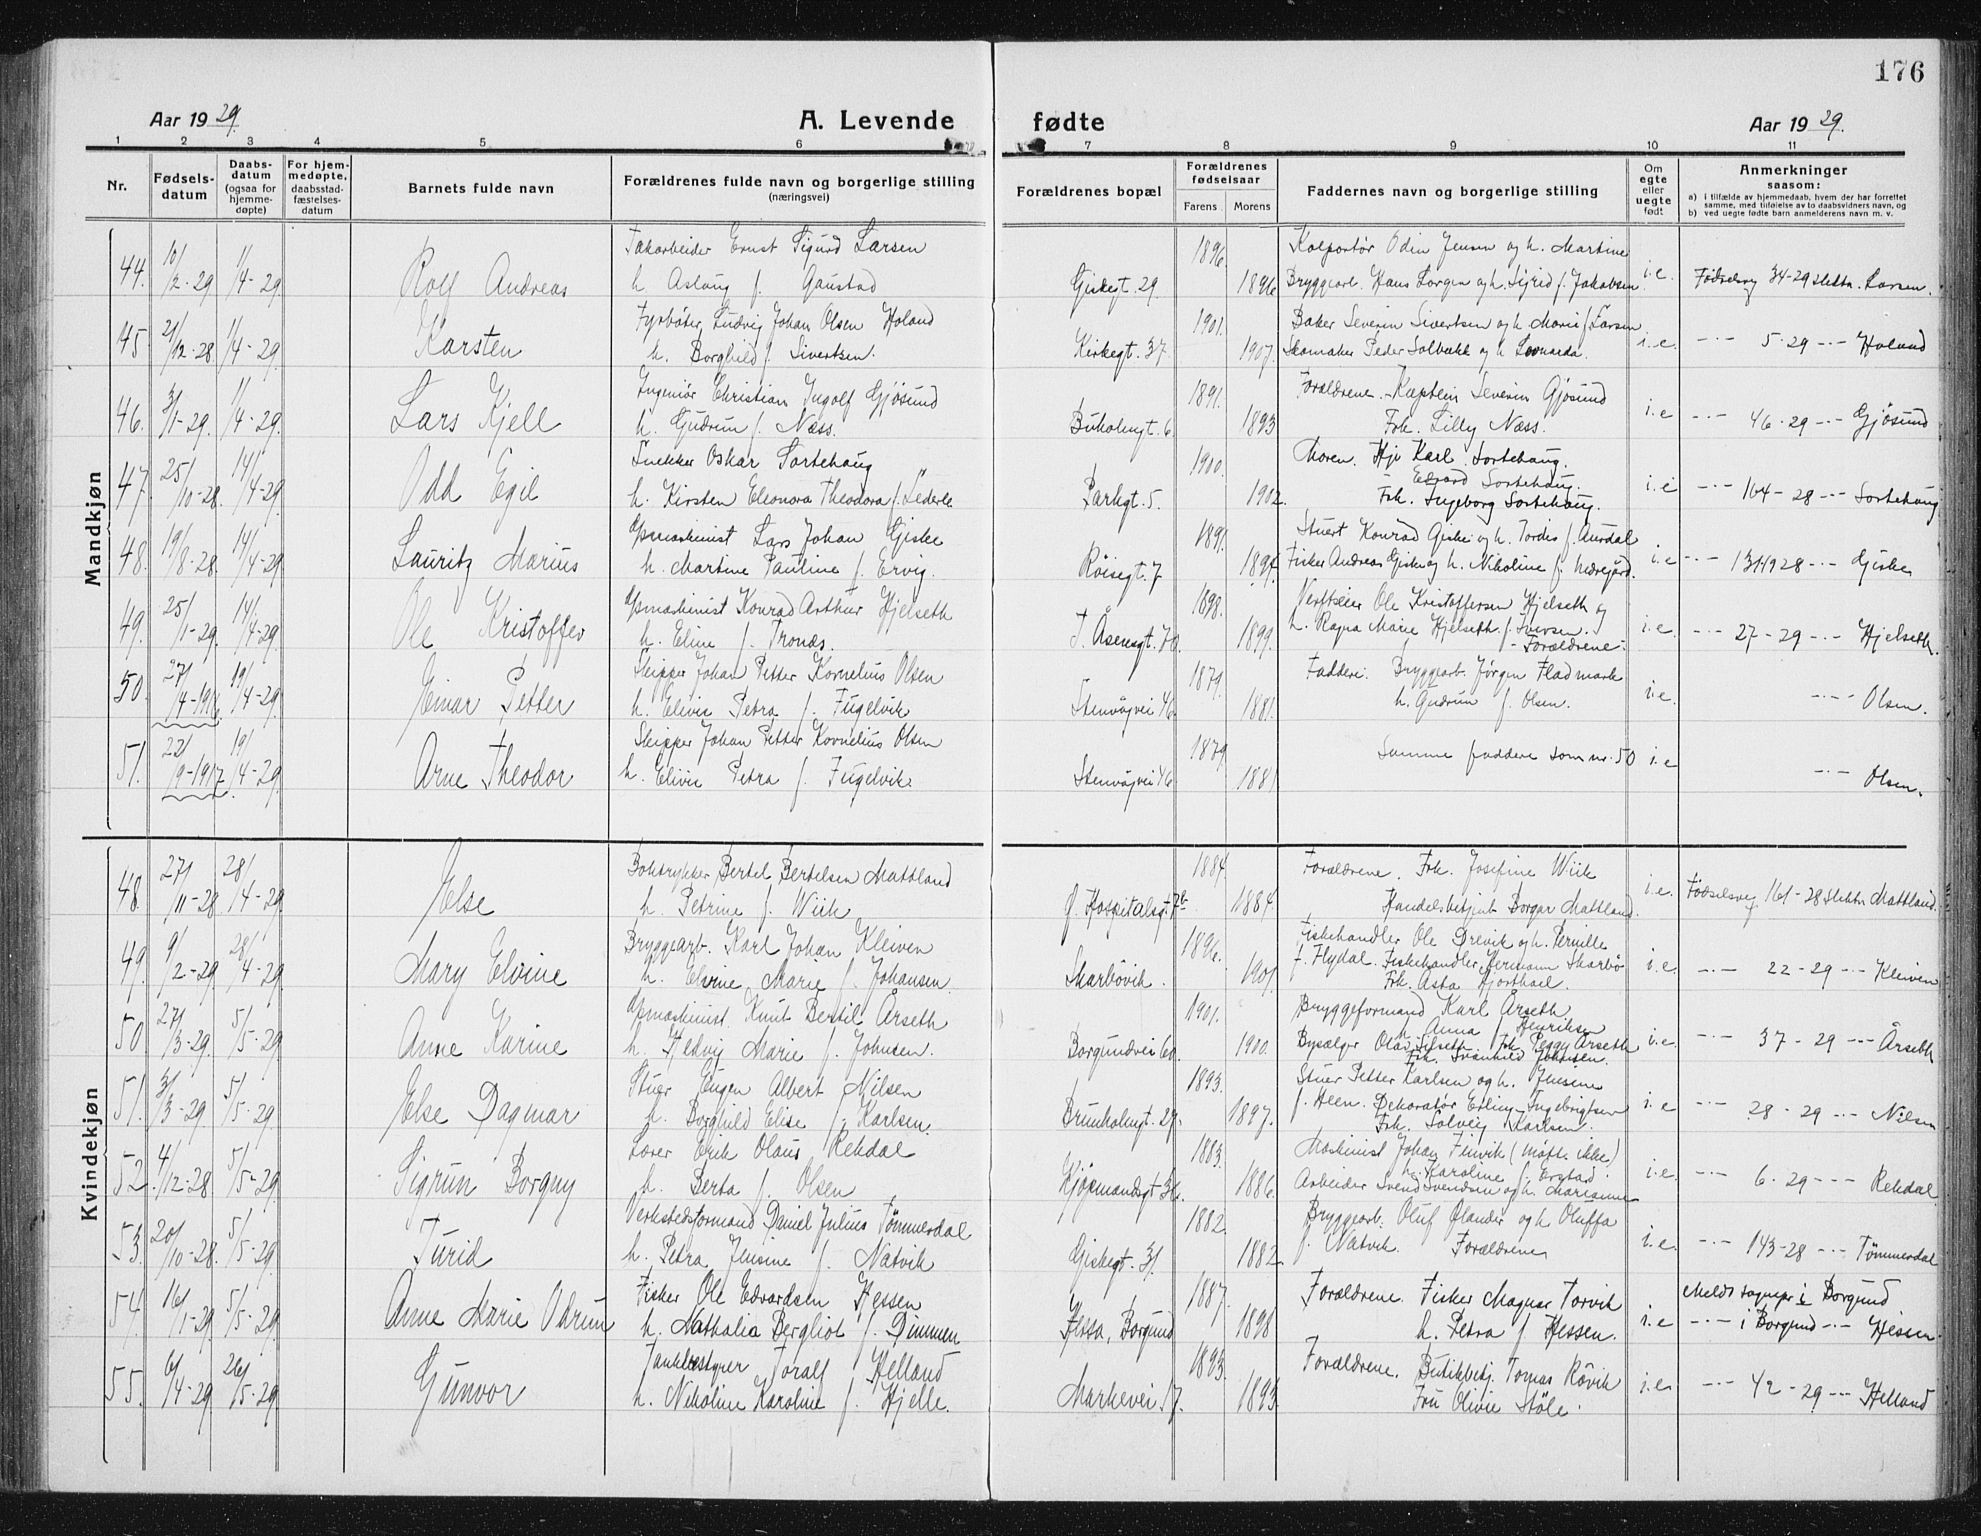 176
Aar 1929. A. Levende fødte Aar 1929.
1 2 3 4 5 6 7 8 9 10 11
Nr. Fødsels-datum Daabs-datum (ogsaa for hjemme-døpte) For hjem-medøpte, daabsstad-fæstelses-datum Barnets fulde navn Forældrenes fulde navn og borgerlige stilling (næringsvei) Forældrenes bopæl Forældrenes fødselsaar Farens Morens Faddernes navn og borgerlige stilling Om egte eller uegte født Anmerkninger saasom:
a) i tilfælde av hjemmedaab, hvem der har forrettet samme, med tilføielse av to daabsvidners navn, og
b) ved uegte født barn anmelderens navn m. v.
Mandkjøn
44. 10/2-29 1/4-29. Rolf Andreas Ernst Sigurd Larsen
h. Aslaug f. Gaustad Giskegt. 29. 1896. 1896 Kolportør Odin Jensen og h. Martine
Bryggearb. Hans Lorgen og h. Sigrid f. Jakobsen i.e. 34-29 Larsen.
45. 21/12-28. 1/4-29. Karsten Fyrbøter Ludvig Johan Olsen Holand
h. Borghild f. Sivertsen. Kirkegt. 37 1901. 1907. Baker Severin Sivertsen og h. Marie f. Larsen
Skomaker Peder Solbakk og h. Leonarda. i.e. -"- 5-29 -"- Holand
46. 3/1-29. 1/4-29. Lars Kjell Ingeniør Christian Ingolf Gjøsund
h. Gudrun f. Næss. 1891. 1893 Forældrene. Kaptein Severin Gjøsund
Frk. Lilly Næss. i.e -"- 46-29 -"- Gjøsund
47. 25/10-28. 14/4-29. Odd Egil Snekker Oskar Sortehaug
h. Kirsten Eleonora Theodora f. Lederle Parkgt. 5. 1900. 1902. Moren. Karl Sortehaug.
Edvard Sortehaug.
Frk. Ingeborg Sortehaug. i.e -"- 164-28 -"- Sortehaug
48. 19/8-28. 14/4-29. Lauritz Marius Lars Johan Giske
h. Martine Pauline f. Ervig. Røisegt. 7 1891. Stuert Konrad Giske og h. Tordis f. Aurdal
Fisker Andreas Giske og h. Nikoline f. i.e -"- 131-1928 -"- Giske
49. 25/1-29. 14/4-29. Ole Kristoffer Konrad Arthur Hjelseth
h. Eline f. Tronæs. J. Åsensgt. 70. 1898. 1899. Verftseier Ole Kristoffersen Hjelseth og
h. Ragna Marie Hjelseth f. Iversen.
- Forældrene - i.e. -"- 27-29 -"- Hjelseth.
50. 27/4-191 19/4-29. Einar Petter Skipper Johan Petter Kornelius Olsen
h. Elivie Petra f. Fugelvik Stenvågvei 46 1879. 1881. Faddere: Bryggearb. Jørgen Fladmark
h. Gudrun f. Olsen. i.e. -"- Olsen.
51. 22/9-1917. 19/4-29. Arne Theodor Skipper Johan Petter Kornelius Olsen
h. Elivie Petra f. Fugelvik Stenvågvei 46 1879 1881 Samme faddere som nr. 50 i.e -"- Olsen.
Kvindekjøn
48. 27/11-28 28/4-29. Else Boktrykker Bertel Bertelsen Mattland
h. Petrine f. Wiik f. Hospitalsgt. 7b 1884. 1884. Forældrene. Frk. Josefine Wiik
Handelsbetjent Borgar Mattland. i.e. 161-28 Mattland.
49. 9/2-29 28/4-29. Mary Elvine Bryggearb. Karl Johan Kleiven
h. Elvine Marie f. Johansen. Skarbøvik. 1896. 1901. Fiskehandler Ole Drevik og h. Pernille
f. Flydal. Fiskehandler Hermann Skarbø
Frk. Asta Hjorthoel. i.e. -"- 22-29 -"- Kleiven
50. 27/3-29. 5/5-29. Anne Karine Knut Bertil Årseth
h. Hedvig Marie f. Johnsen. Borgundvei 60. 1901. 1900. Bryggeformand Karl Årseth
h. Anna f. Henriksen
Olav Silseth Frk. Peggy Årseth
Frk. Svanhild Johnsen. i.e. -"- 37-29 -"- Årseth
51. 3/3-29 5/5-29. Else Dagmar Albert Nilsen
h. Borghild Elise f. Karlsen. Brunholmgt. 27. 1893. 1897. Stuer Petter Karlsen og h. Jensine
f. Heen. Dekoratør Erling Ingebrigtsen
Frk. Solveig Karlsen. i.e -"- 28-29 -"- Nilsen
52. 4/12-28 5/5-29. Sigrun Borgny Lærer Erik Olaus Rekdal
h. Berta f. Olsen Kjøpmandsgt 36. 1883. 1886. Maskinist Johan (møtt ikke)
h. Karoline f.
Arbeider Svend Svendsen og h. Marianne i.e. -"- 6-29 -"- Rekdal
53. 20/10-28. 5/5-29. Turid Verkstedsformand Daniel Julius Tømmerdal
h. Petra Jensine f. Natvik Giskegt. 31. 1882. 1882. Bryggearb. Oluf Ølander og h. Oluffa
f. Natvik. Forældrene i.e. -"- 143-28 -"- Tømmerdal
54. 16/1-29. 5/5-29. Anne Marie Odrun Fisker Ole Edvardsen Hessen
h. Nathalia Bergliot f. Dimmen Hessa, Borgund 1887. 1898 Forældrene. Fisker Magnar Torvik
h. Petra f. Hessen. i.e Meldt sognepr i Borgund
-"- i Borgund -"- Hessen.
55. 6/4-29 26/5-29. Gunvor Tankbestyrer Toralf Helland
h. Nikoline Karoline f. Hjelle. Markevei 17. 1893. 1893. Forældrene. Butikkbetj. Tomas Røvik
Fru Olivie Støle. i.e. -"- 42-29 -"- Helland